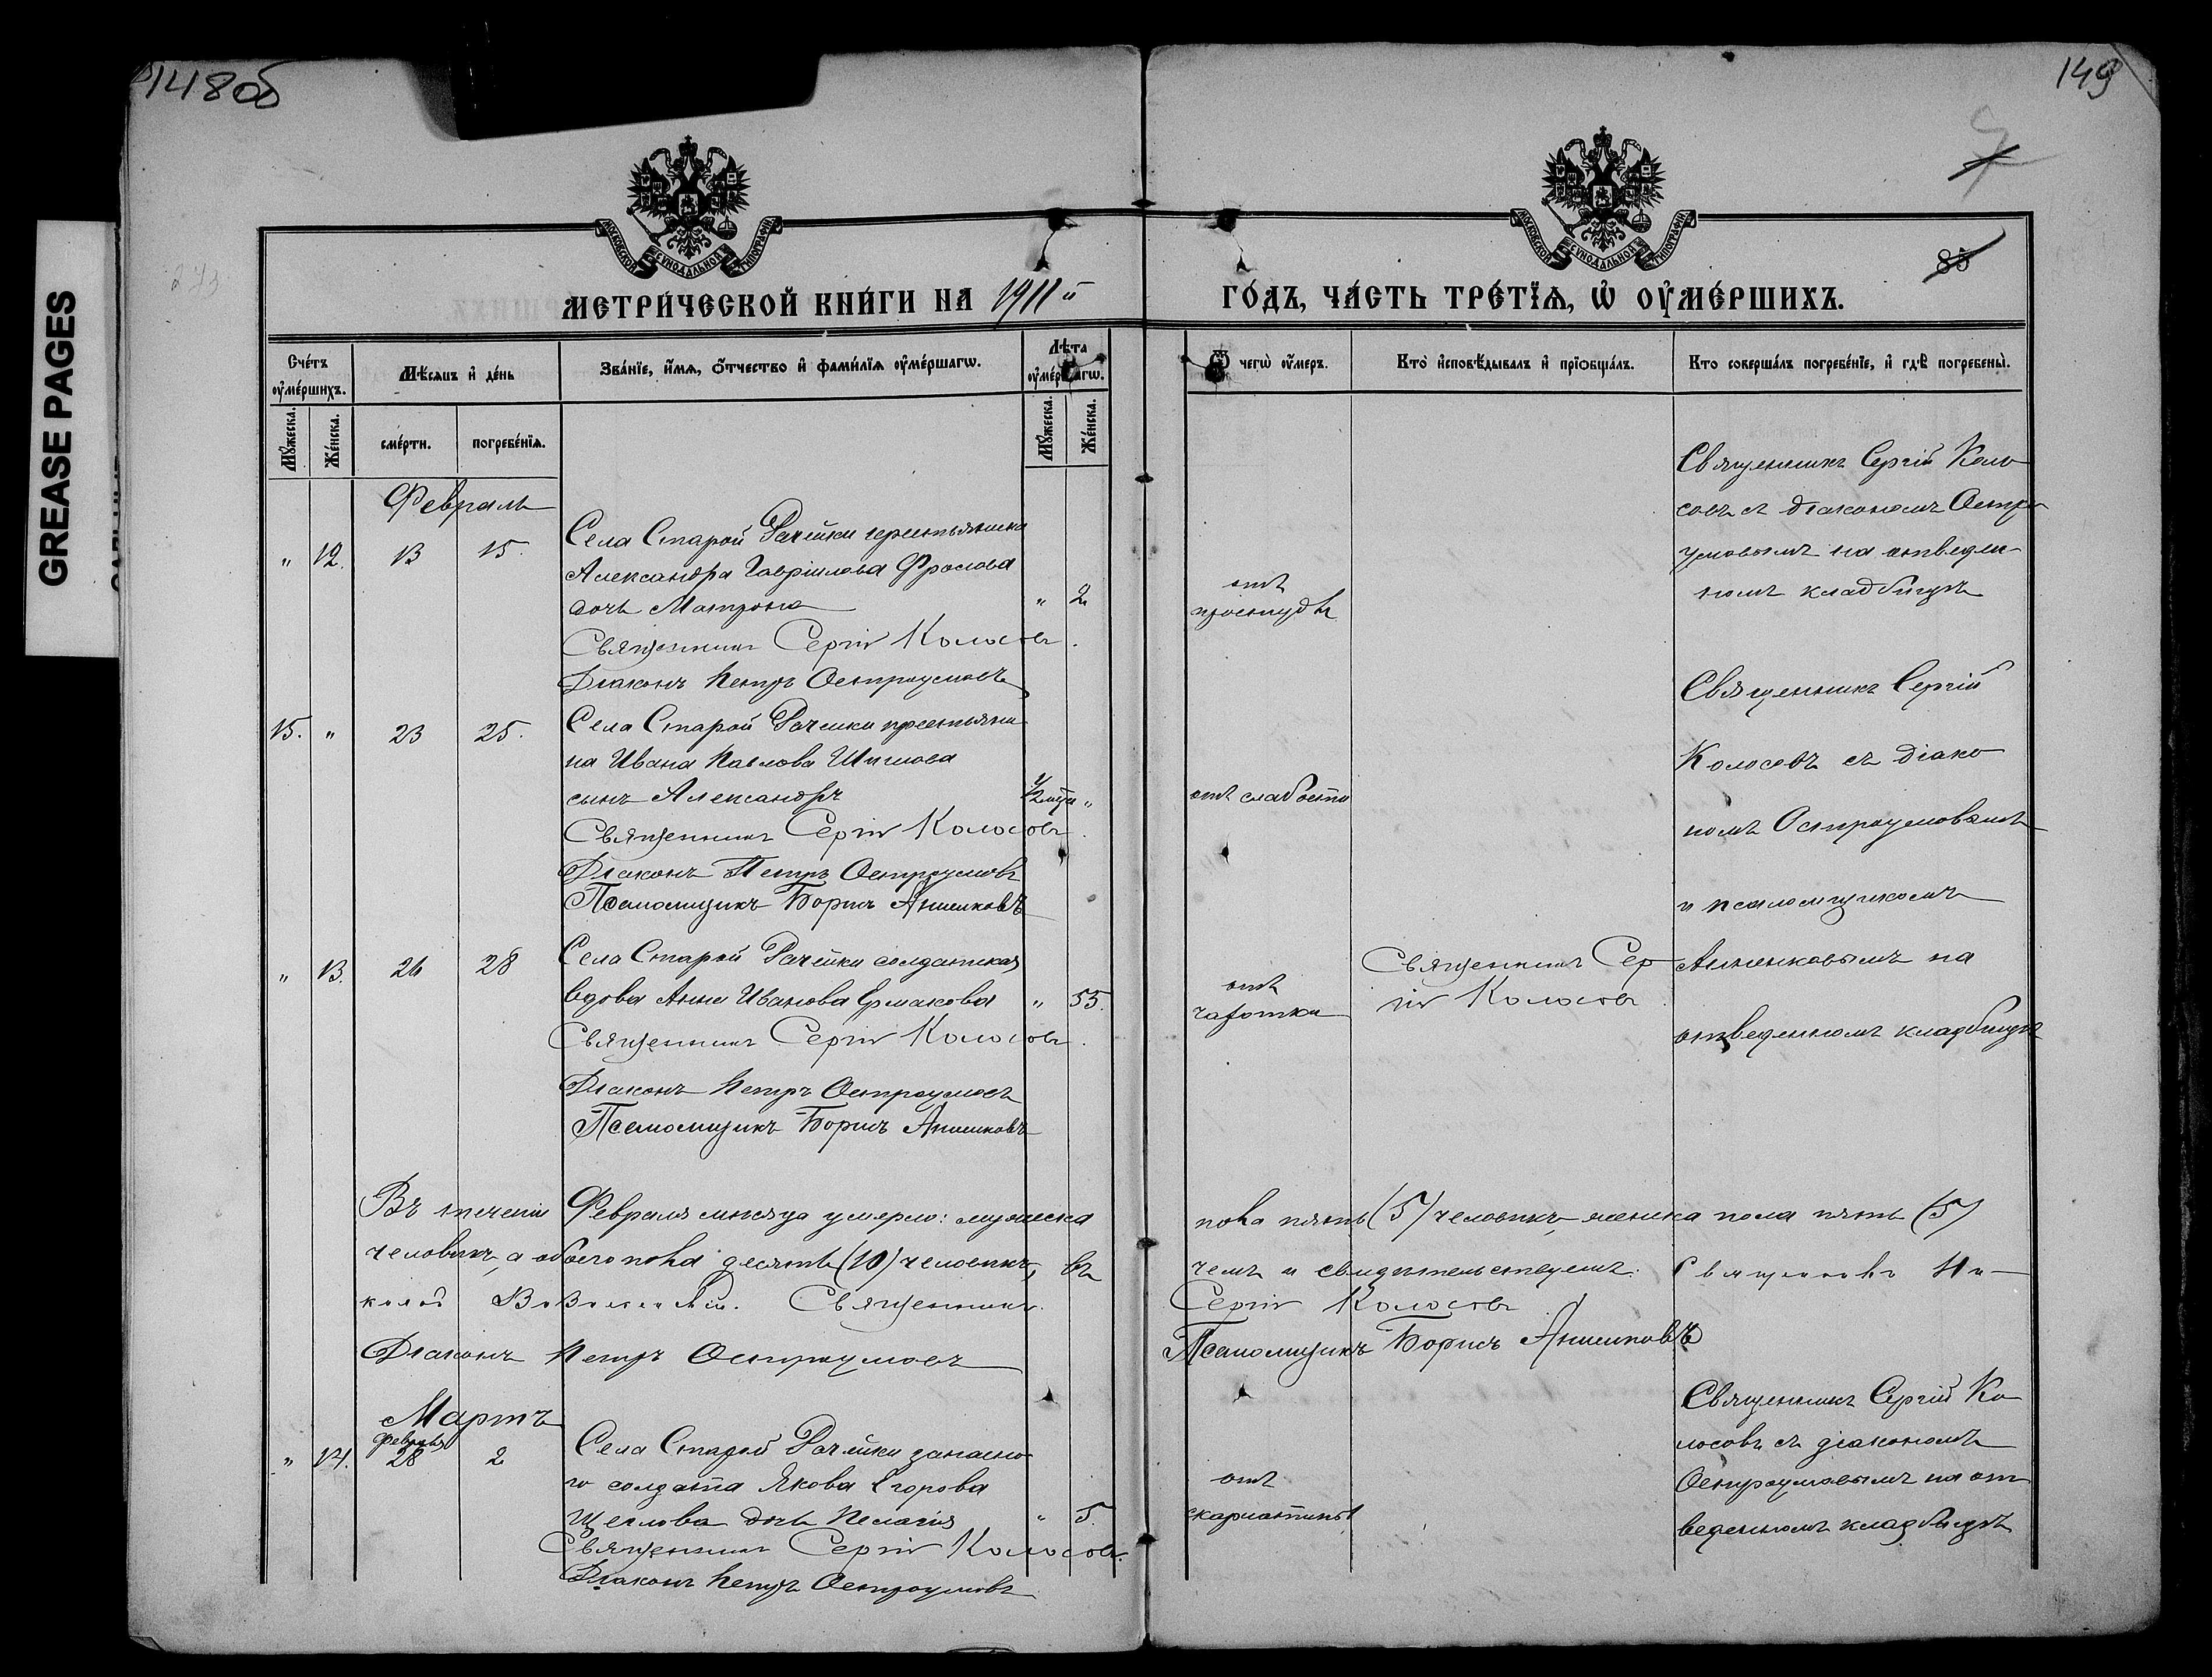 148об
149
GREASE PAGES
85
МОСКОВСКОЙ СѴНОДАЛЬНОЙ ТИПОГРАФІИ
МОСКОВСКОЙ СѴНОДАЛЬНОЙ ТИПОГРАФІИ
МЕТРИ́ЧЕСКОЙ КНИ́ГИ НА 1911й
ГО́ДЪ, ЧА́СТЬ ТРЕ́ТІѦ, Ѡ҆ ОУ҆МЕ́РШИХЪ.
Сче́тъ оу҆ме́ршихъ.
Мѣ́сяцъ и҆ де́нь
Зва́нїе, и҆́мѧ, ѻ҆́тчество и҆ фами́лїѧ оу҆ме́ршагѡ.
Лѣ́та оу҆ме́ршагѡ.
Ѿ чегѡ̀ оу҆́меръ.
Кто̀ и҆сповѣ́дывалъ и҆ прїѻбща́лъ.
Кто соверша́лъ погребе́нїе, и҆ гдѣ̀ погребены̀.
Мꙋ́жеска.
Же́нска.
сме́рти.
погребе́нїѧ.
Мꙋ́жеска.
Же́нска.
Февраль
" 12. 13 15.
Села Старой Рачейки крестьянина
Александра Гавріилова Фролова
дочь Матрона " 2
Священникъ Сергій Колосовъ.
Діаконъ Петръ Остроумовъ
отъ
простуды
Священникъ Сергій Коло
совъ съ діакономъ Остро
умовымъ на отведен-
номъ кладбищѣ
15. " 23 25.
Села Старой Рачейки крестьяни
на Ивана Павлова
сынъ Александръ 1/2 "
Священникъ Сергій Колосовъ.
Діаконъ Петръ Остроумовъ
Псаломщикъ Борисъ Анненковъ
отъ слабости
Священникъ Сергій
Колосовъ съ діако
номъ Остроумовымъ
и псаломщикомъ
Анненковымъ на
отведенномъ кладбищѣ
" 13. 26 28
Села Старой Рачейки солдатская
вдова Анна Иванова Ермакова " 55.
Священникъ Сергій Колосовъ.
Діаконъ Петръ Остроумовъ
Псаломщикъ Борисъ Анненковъ
отъ
чахотки
Священникъ Сер
гій Колосовъ.
Въ теченіи Февраля мѣсяца умерло: мужеска пола пять (5) человѣкъ, женска пола пять (5)
человѣкъ, а обоего пола десять (10) человѣкъ, въ чемъ и свидѣтельствуемъ. Священникъ Ни-
колай Священникъ Сергій Колосовъ.
Діаконъ Петръ Остроумовъ Псаломщикъ Борисъ Анненковъ
Мартъ
Февраля
" 14. 28 2
Села Старой Рачейки запасно
го солдата Якова Егорова
Щеглова дочь Пелагія " 5.
Священникъ Сергій Колосовъ.
Діаконъ Петръ Остроумовъ
отъ
скарлатины
Священникъ Сергій Ко
лосовъ съ діакономъ
Остроумовымъ на от
веденномъ кладбищѣ